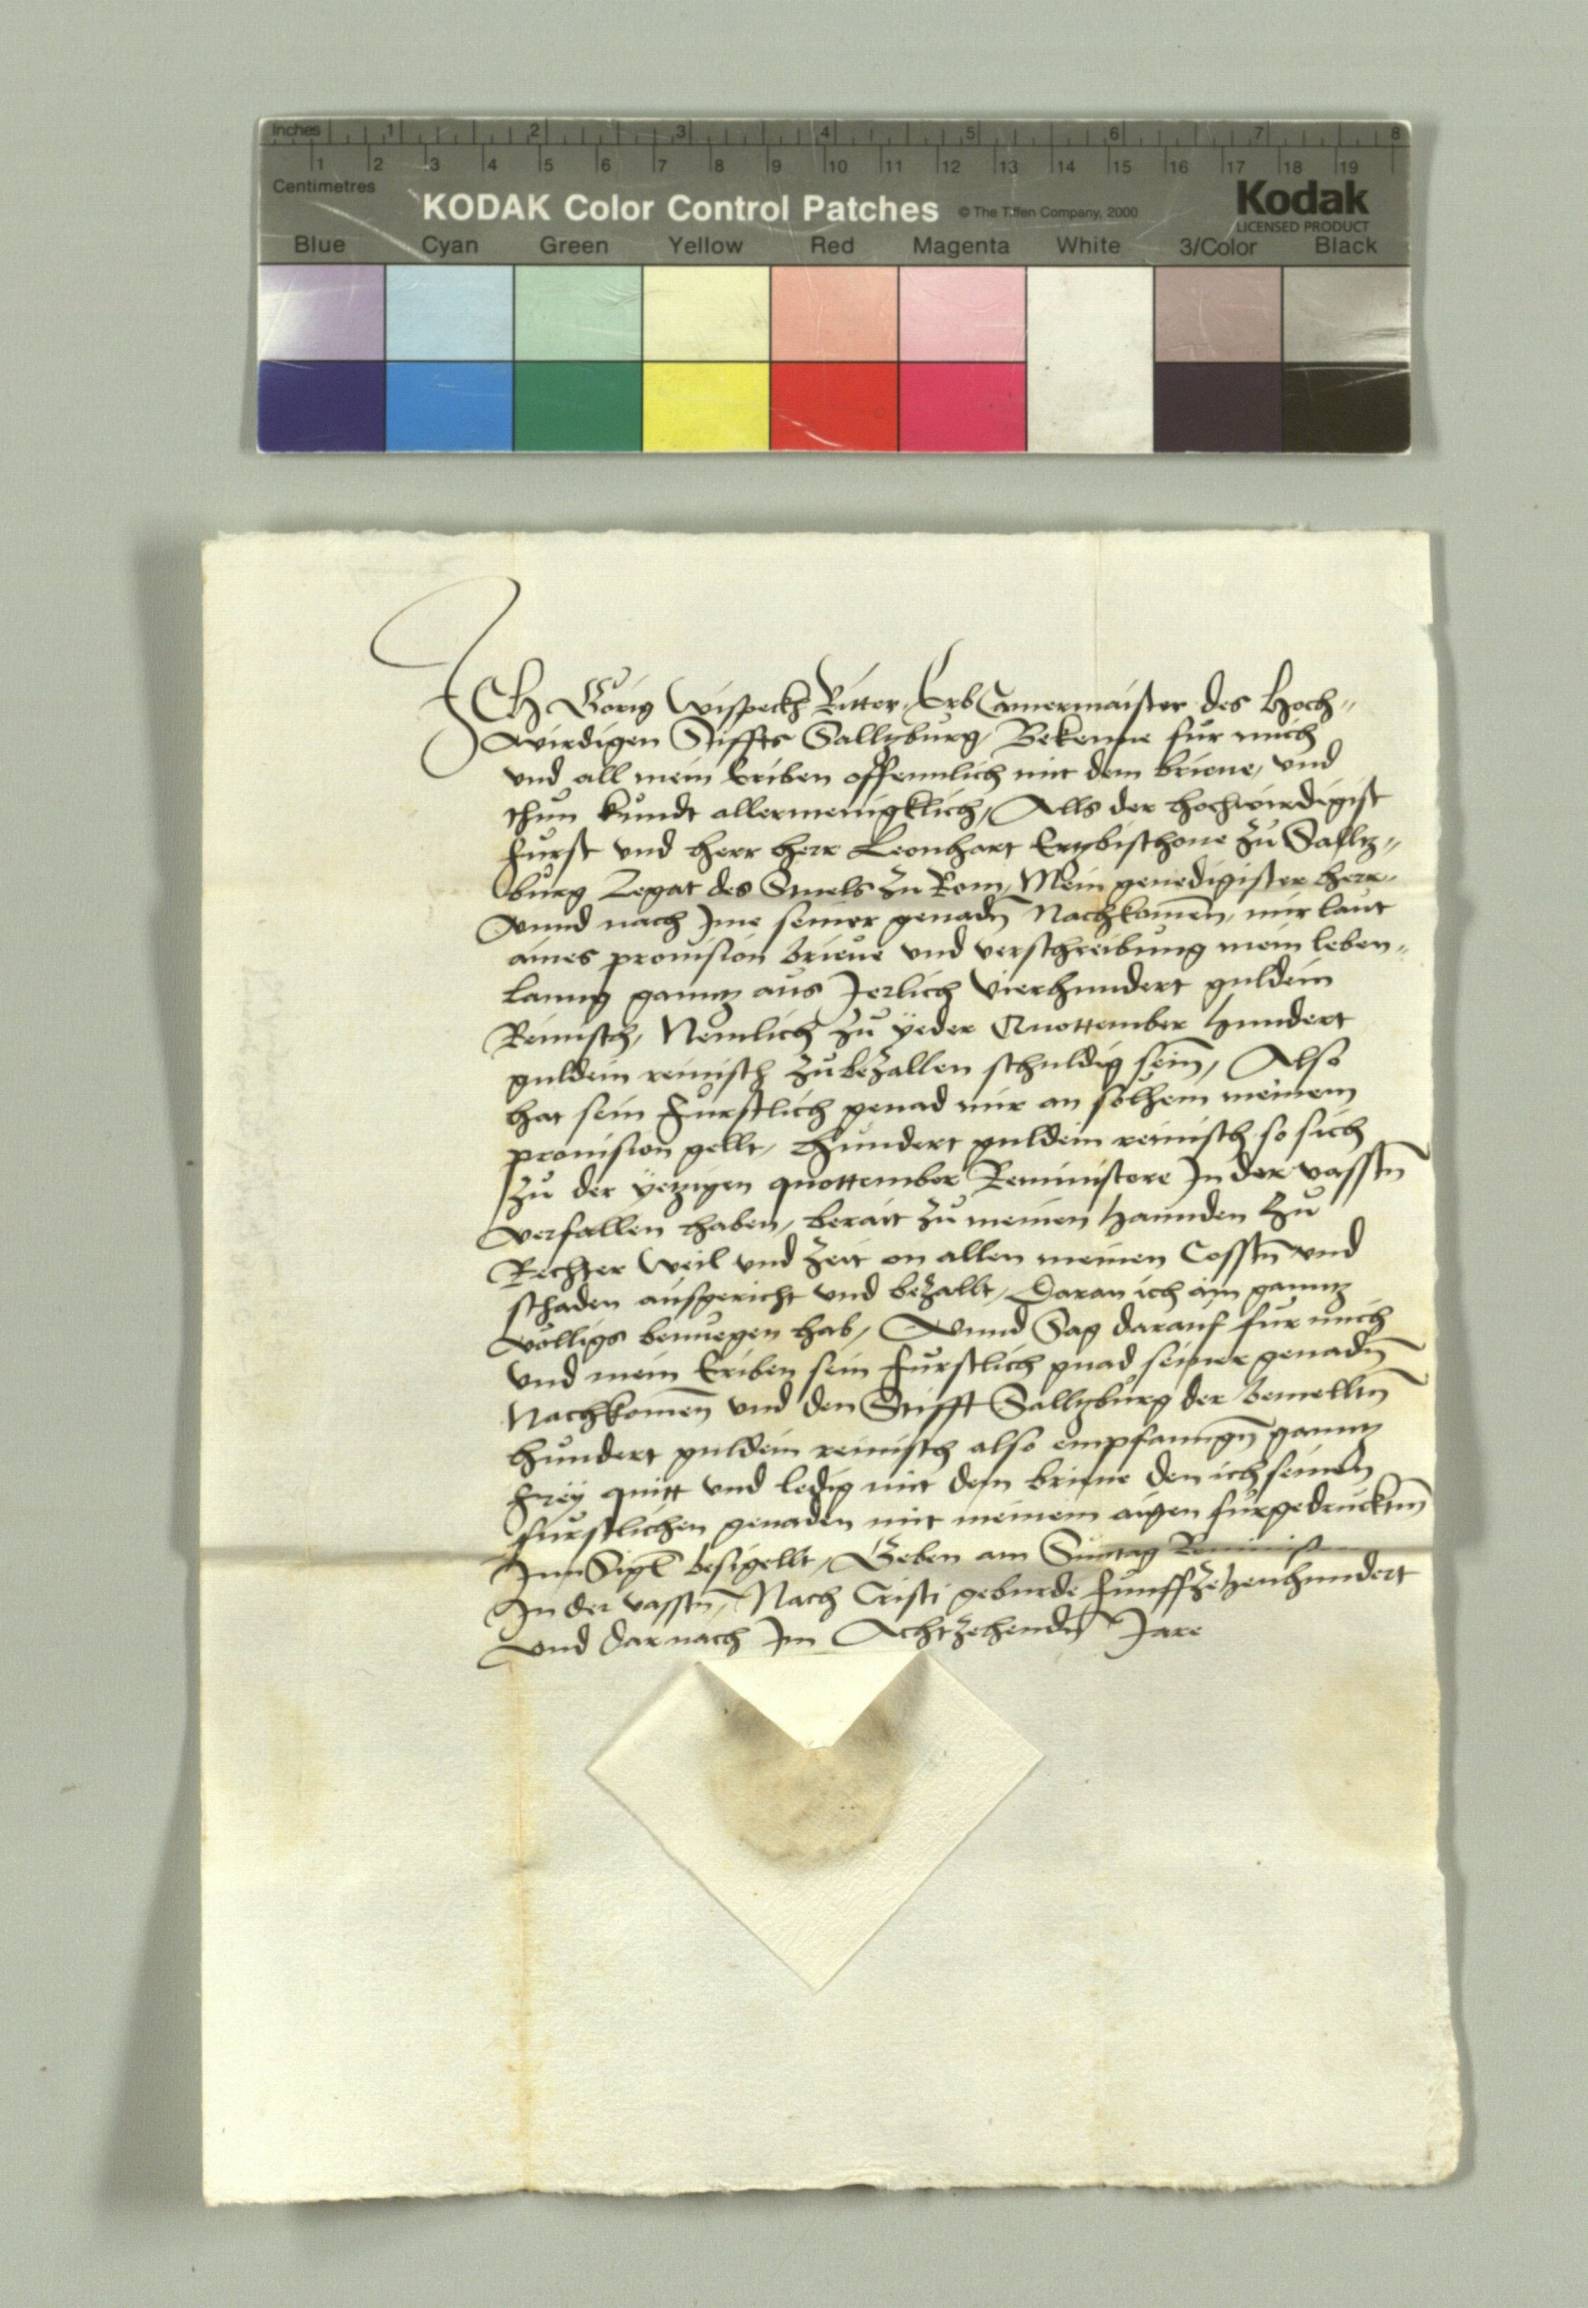 Inches 1 2 3 4 5 6 7 8
1 2 3 4 5 6 7 8 9 10 11 12 13 14 15 16 17 18 19
Centimetres
KODAK Color Control Patches © The Tiffen Company, 2000 Kodak
LICENSED PRODUCT
Blue Cyan Green Yellow Red Magenta White 3/Color Black
ICH Görig Wispeckh Ritter, ErbCamermaister des Hoch-
wirdigen Stiffts Salltzburg, Bekenne für mich
vnd all mein Eriben offennlich mit dem brieue, vnd
thun kundt allermenigklich, Alls der hochwirdigist
Fürst vnd herr herr Leonhart Ertzbischoue zu Salltz-
burg Legat des Stuels zu Rom, Mein genedigister herr,
Vnnd nach Ime seiner genadn̄ Nachkomen̄, mir laut
aines prouision brieue vnd verschreibung mein leben-
lanng ganntz aus Jerlich vierhundert guldein
Reinisch, Nemlich zu yeder Quottember hundert
guldein reinisch zubezallen schuldig sein̄, Also
hat sein Fürstlich genad mir an solhem meinem
prouision gellt, hundert guldein reinisch so sich
zu der yetzigen quottember Reministere In der vasstn̄
verfallen haben, berait zu meinen hannden zu
Rechter weil vnd zeit on allen meinen Cosstn̄ vnd
schaden ausgericht vnd bezallt, Daran ich ain ganntz
völligs benuegen hab, Vnnd Sag darauf für mich
vnd mein Eriben sein Fürstlich gnad seiner genadn̄
Nachkomen̄ vnd den Stifft Salltzburg der bemelltn̄
hundert guldein reinisch also empfanngn̄ ganntz
Frey quitt vnd ledig mit dem brieue den ich seinen
fürstlichen genaden mit meinem aigen fürgedrucktm̄
InnSigl besigellt, Geben am Sunntag
In der vasstn̄, Nach Cristi geburde Funffzehenhundert
vnd darnach Im Achtzehendn̄ Jare